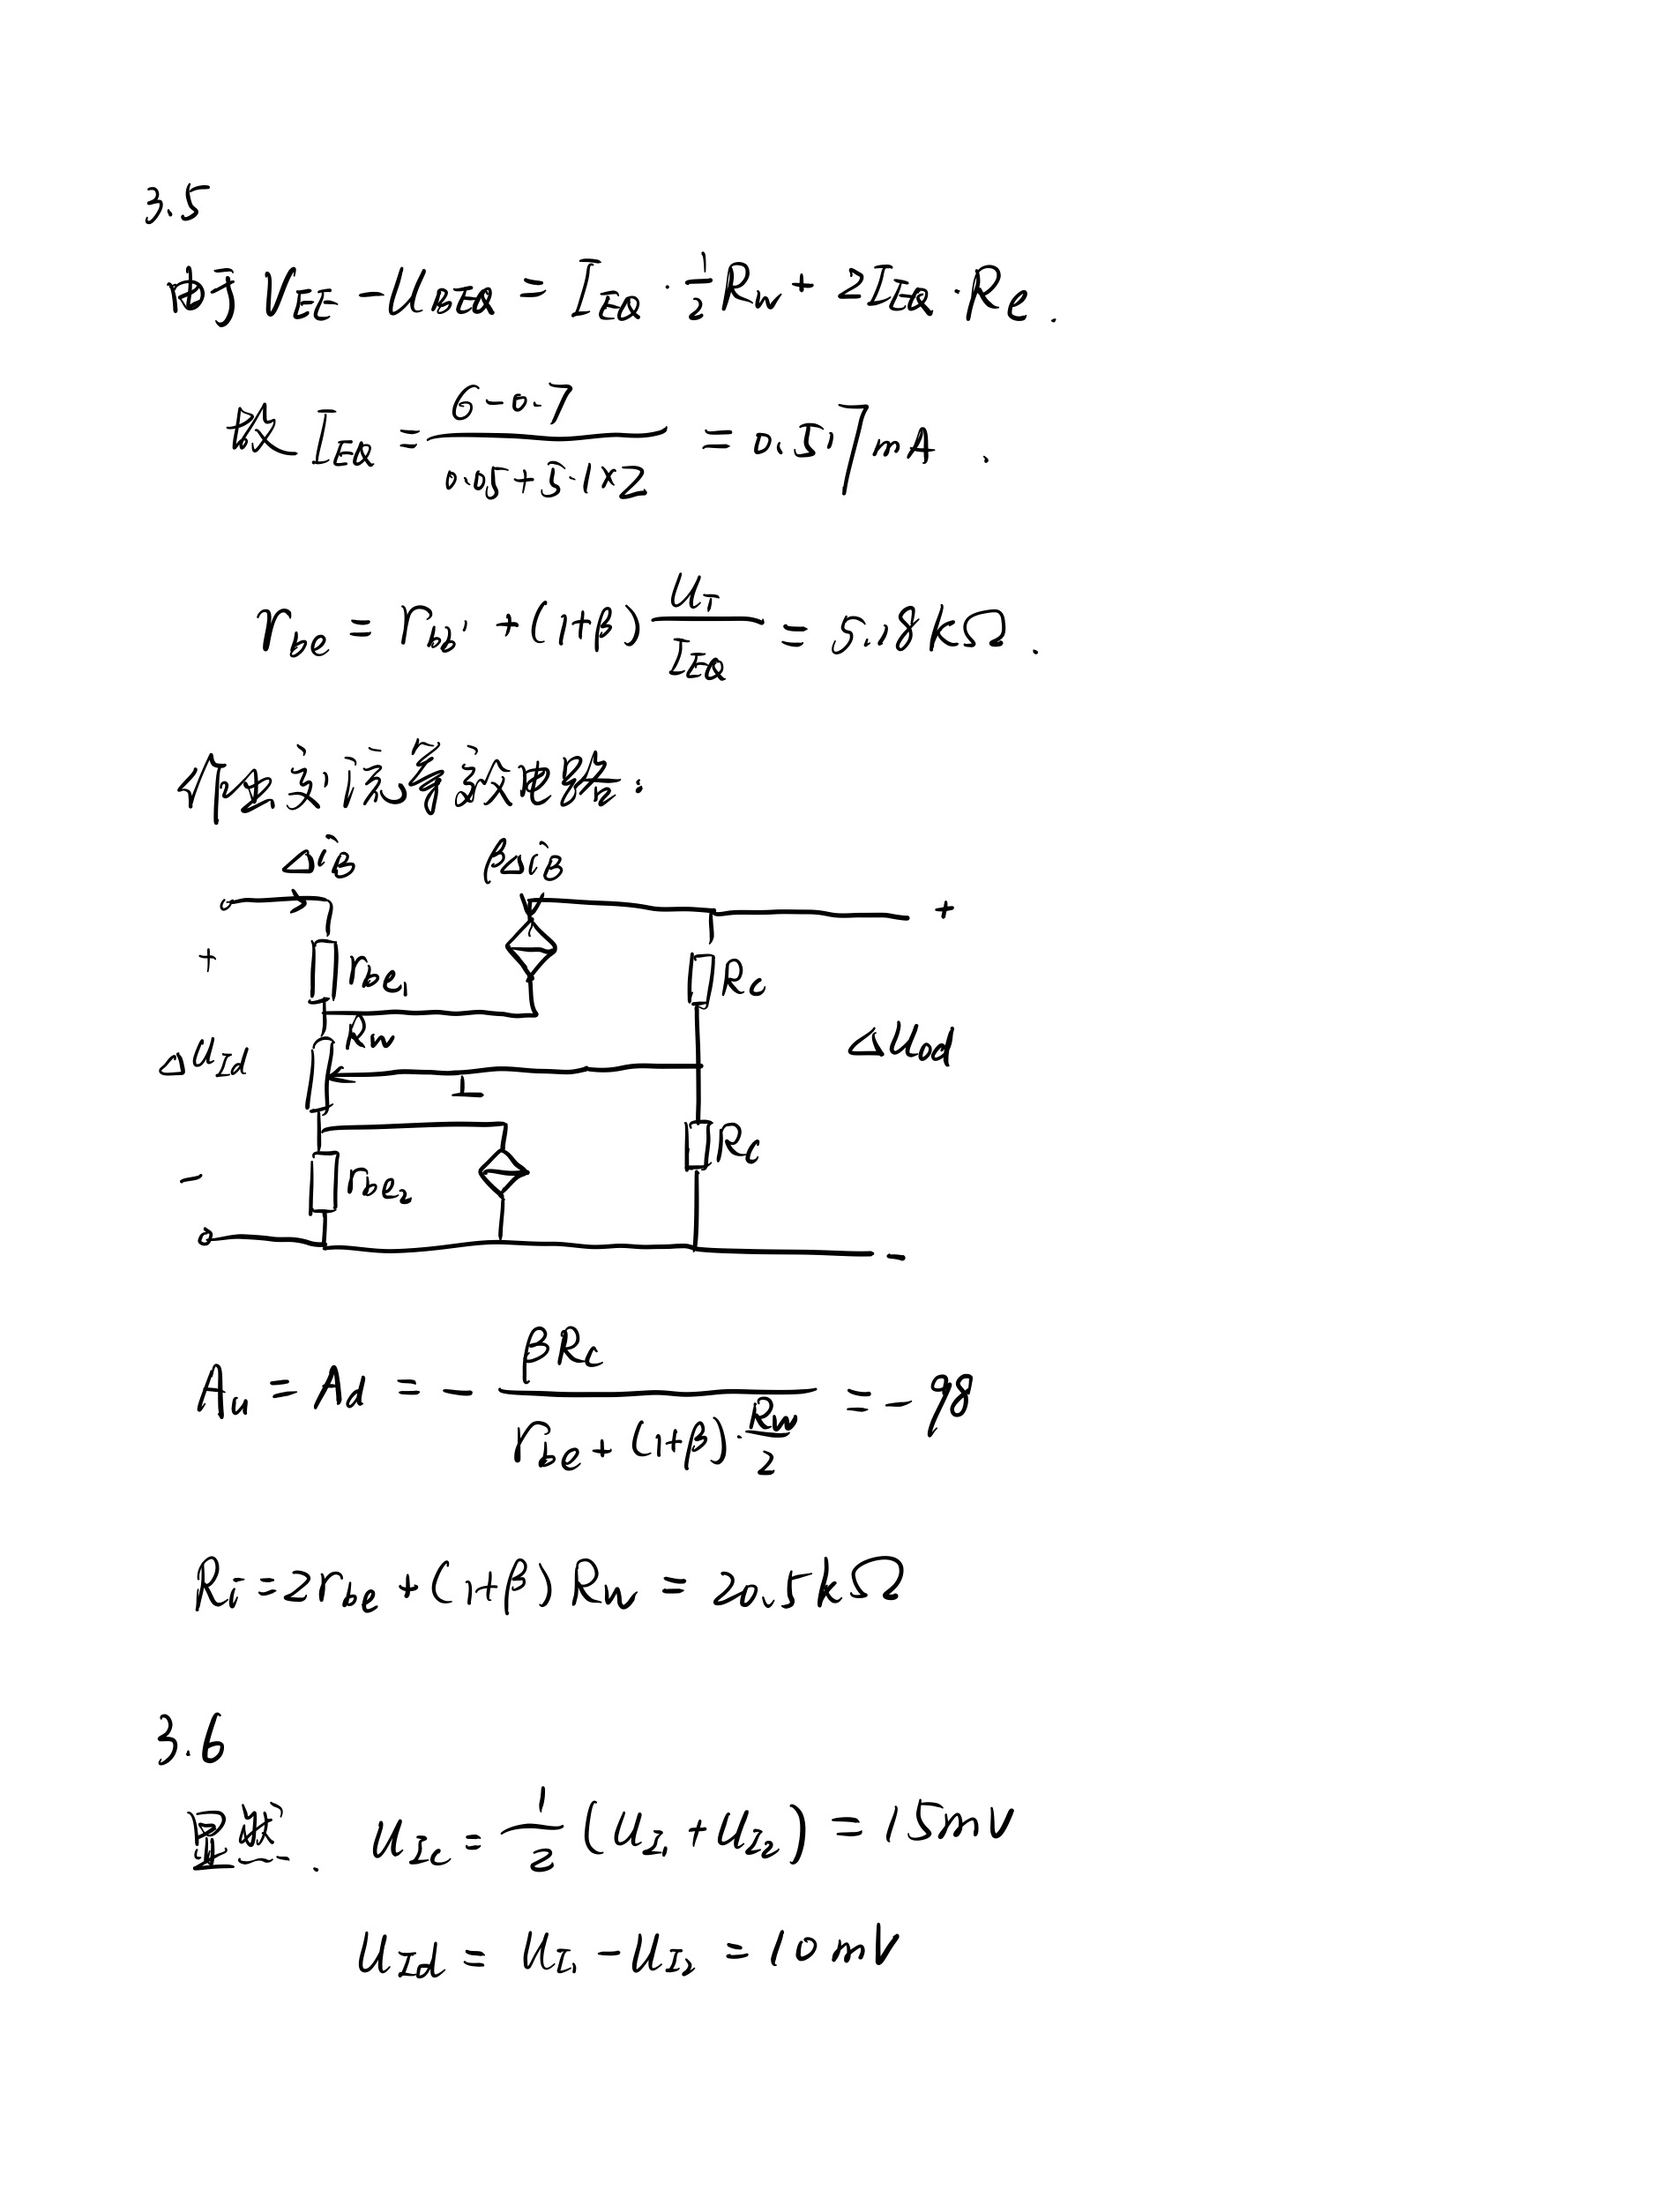 3.5
由于 V_EE - U_BEQ = I_EQ · 1/2 R_W + 2I_EQ · R_e .
故 I_EQ = (6-0.7)/(0.05+5.1×2) = 0.517mA .
r_be = r_bb' + (1+β) U_T/I_EQ = 5.18kΩ .
作出交流等效电路:
Δi_B βΔi_B
+
+ r_be1 R_c
R_W
ΔU_Id ΔU_od
r_be2 R_c
-
-
A_u = A_d = - βR_c/(r_be + (1+β)·R_W/2) = -98
R_i = 2r_be + (1+β) R_W = 20.5kΩ
3.6
显然. U_Ic = 1/2 (U_I1 + U_I2) = 15mV
U_Id = U_I1 - U_I2 = 10mV